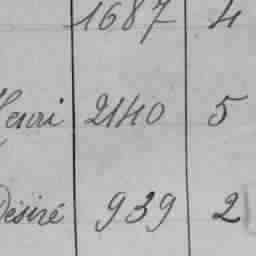 1687 4
Henri 2140 5
Désiré 939 2